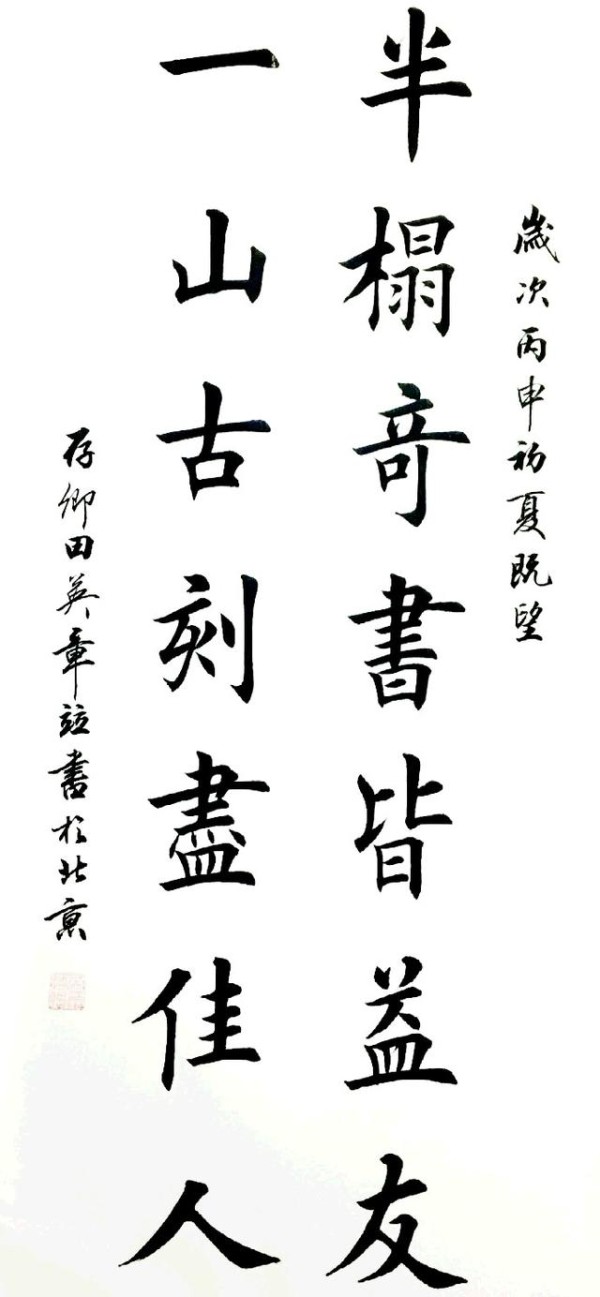 歲次丙申初夏既望
半榻竒書皆益友
一山古刻盡佳人
存卿田英章竝書於北京